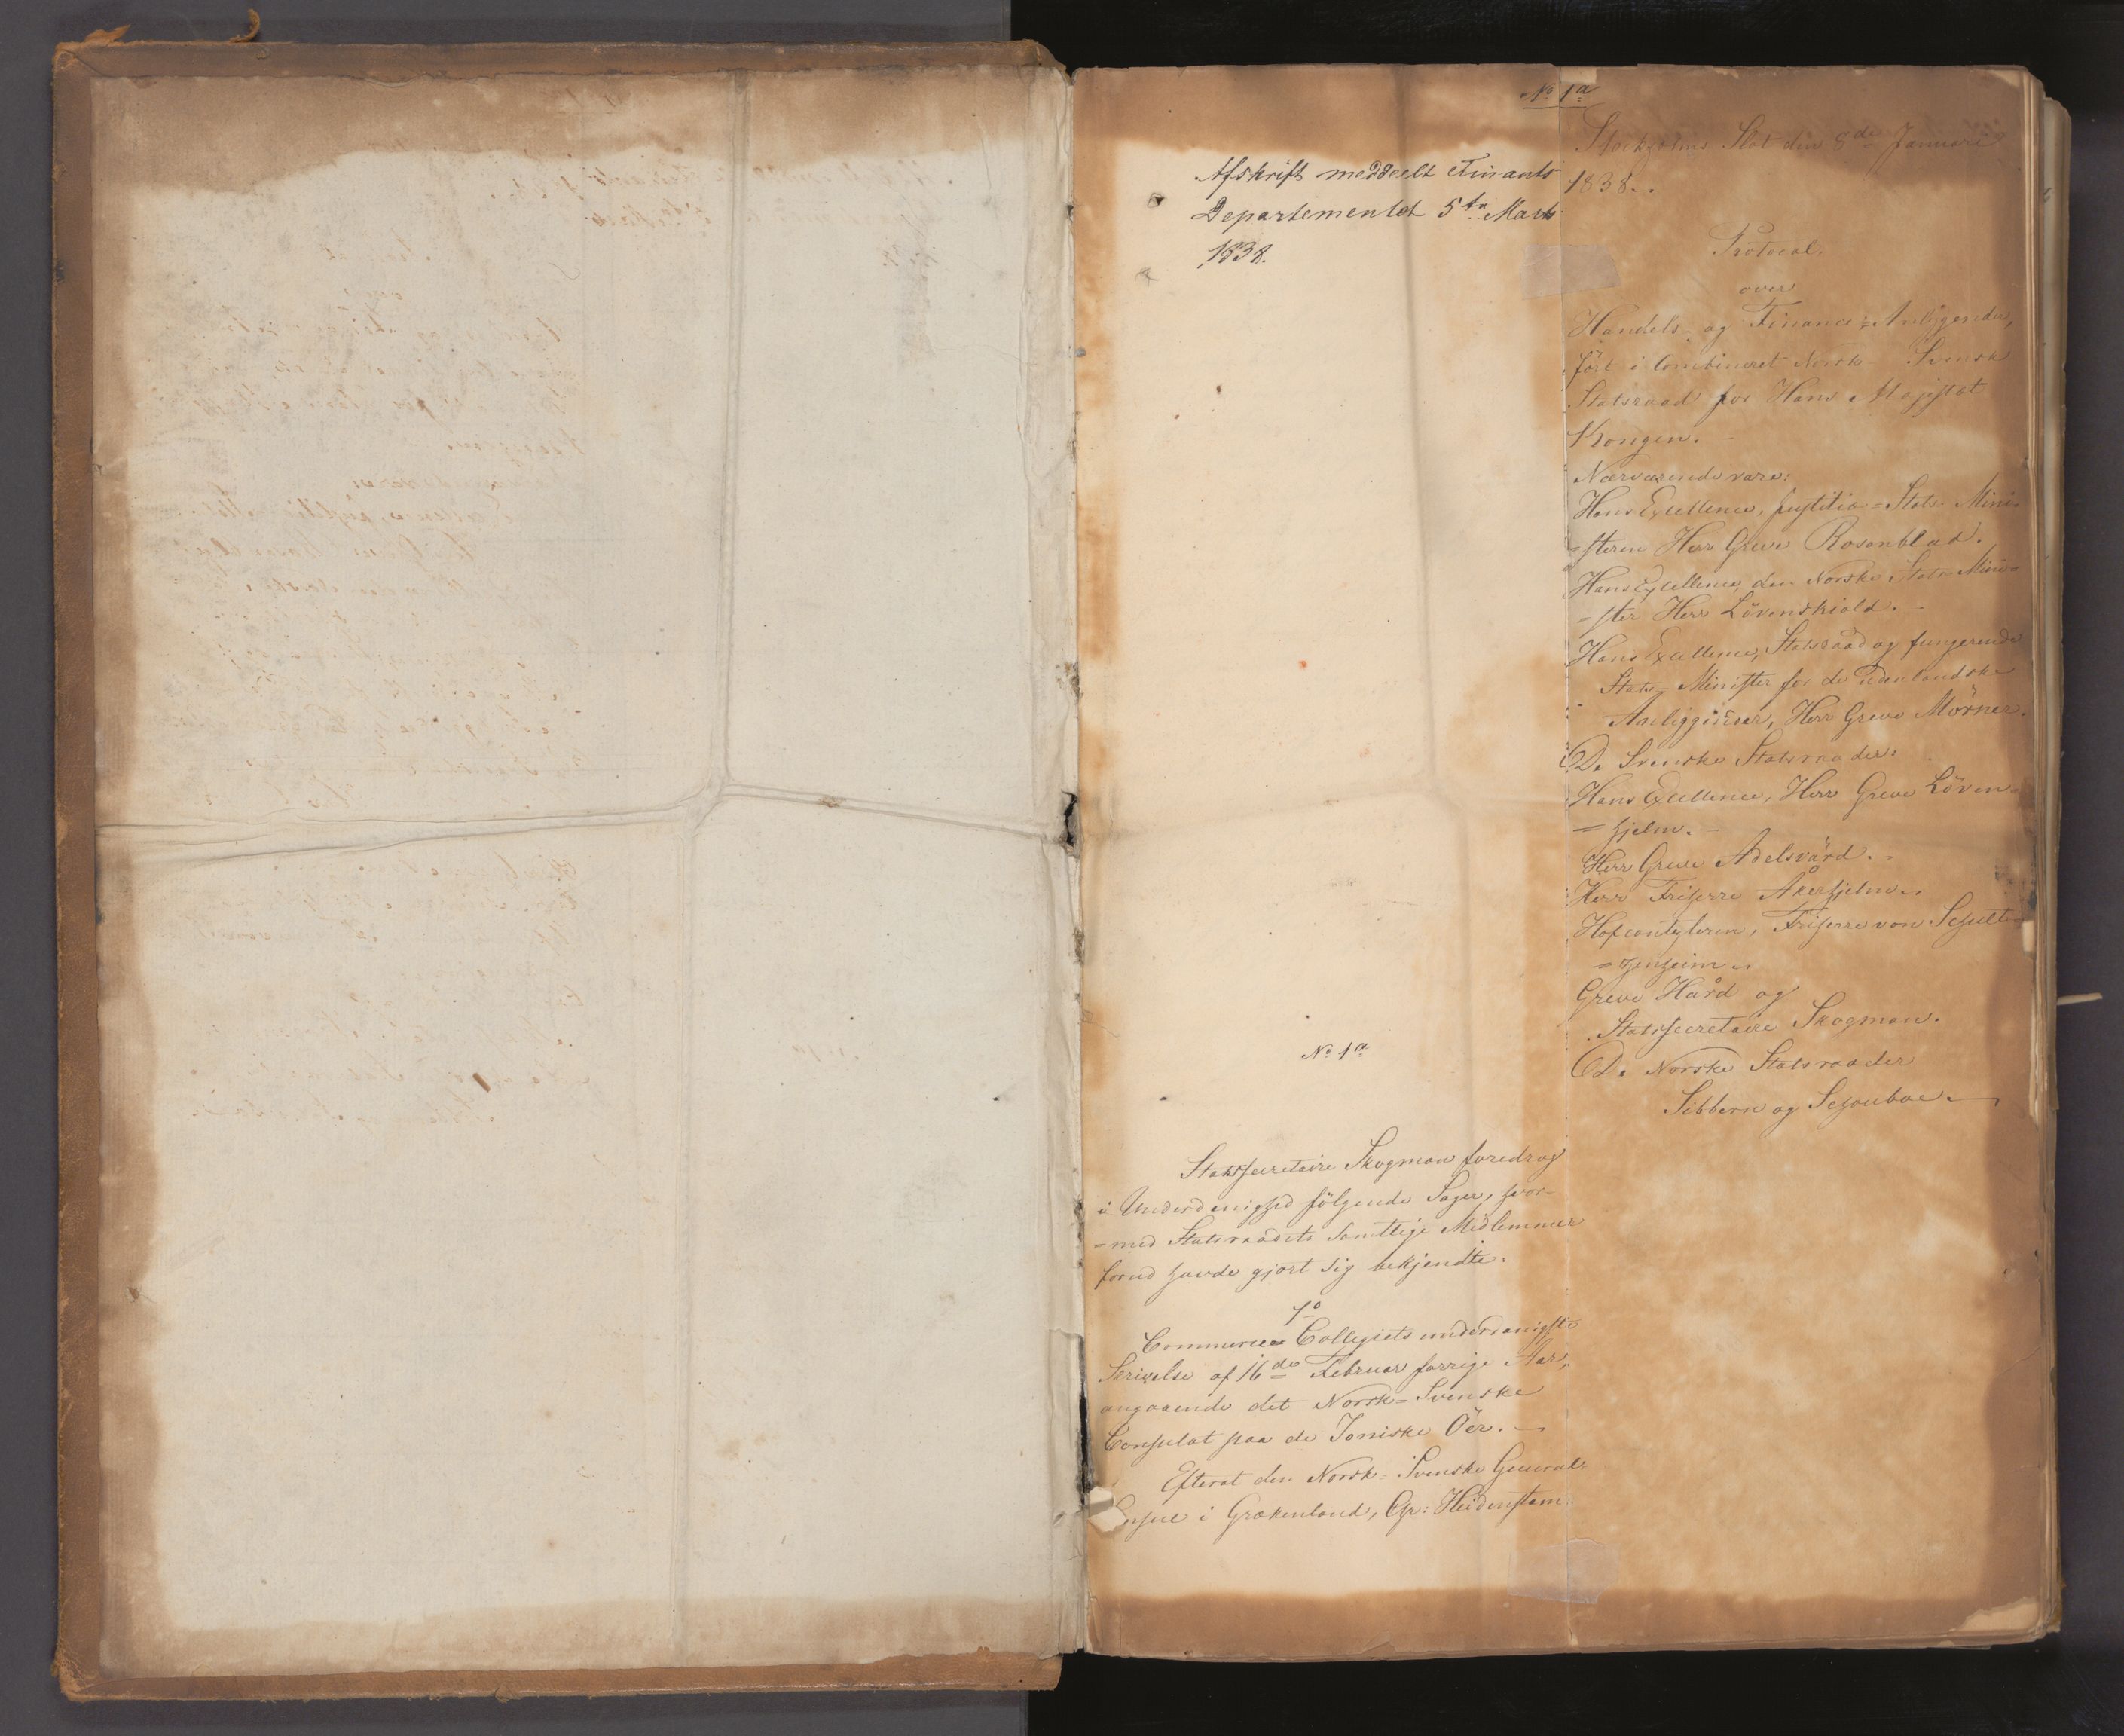 No 1a
Stockholms Slot den 8de Januari
1838.
Afskrift meddeelt Finants
Departementet 5te Marts
1838.
Protocol
over
Handels- og Finance-Anliggender,
ført i combineret Norsk Svensk
Statsraad for Hans Majestæt
Kongen.
Nærværende vare:
Hans Excellence, Justitiæ-Stats-Mini-
-steren Herr Greve Rosenblad.
Hans Excellence den Norske Stats-Mini-
-ster Herr Løvenskiold.
Hans Excellence, Statsraad og fungerende
Stats-Minister for de udenlandske
Anliggender, Herr Greve Mörner.
De Svenske Statsraader:
Hans Excellence, Herr Greve Löven-
-hjelm.
Herr Greve Adelsvärd.
Herr Friherre Åkerhjelm.
Hofcantzleren, Friherre von Schult-
-zenheim.
Greve Hård og
Statssecretaire Skogman.
De Norske Statsraader
Sibbern og Schouboe.
No 1a
Statssecretaire Skogman foredrog
i Underdanighed følgende Sager, hvor-
-med Statsraadets samtlige Medlemmer
forud havde gjort sig bekjendte.
1o
Commerce Collegiets underdanigste
Skrivelse af 16de Februar forrige Aar,
angaaende det Norsk-Svenske
Consulat paa de Joniske Öer.
Efterat den Norsk-Svenske General-
Consul i Grækenland, Chr: Heidenstam